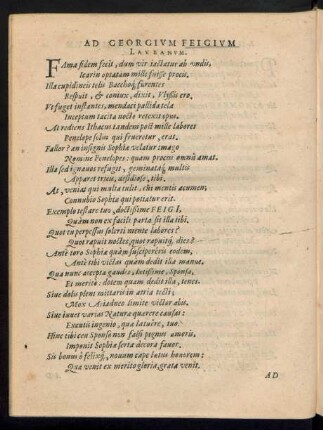 AD GEORGIVM FEIGIVM
LAVBANVM.
FAma fidem fecit, dum vir iactatur ab vndis,
Icarin optatam mille fuisse procis.
Illa cupidineis telis Bacchoq́; furentes
Respuit, & coniux, dixit, Vlyssis ero.
Vt fuget instantes, mendaci pallida tela
Inceptum tacita nocte retexit opus.
At rediens Ithacus tandem post mille labores
Penelope fidus qui frueretur, erat.
Fallor? an insignis Sophiæ velatur imago
Nomine Penelopes: quam procus omnis amat.
Illa sed ignauos refugit, geminatq́; multis
Apparet tenui, assiduoso, tibi.
At, veniat qui multa tulit, cui mentis acumen;
Connubio Sophiæ qui potiatur erit.
Exemplo testare tuo, doctissime FEIGI,
Quàm non ex facili parta sit illa tibi.
Quot tu perpessus solerti mente labores?
Quot rapuit noctes, quot rapuitq́; dies?
Antè toro Sophiæ quàm susciperêris eodem,
Antè tibi victas quàm dedit illa manus.
Qua nunc accepta gaudes, lætissime, Sponsa,
Et meritò: dotem quam dedit illa, tenes.
Siue dolis plent mittaris in atria tecti,
Mox Ariadneo limite victor abis.
Siue iuuet varias Naturæ quærere causas:
Excutis ingenio, quæ latuêre, tuo
Hinc tibi ceu Sponso non falsi pignus amoris,
Imponit Sophiæ serta decora fauor.
Sis bonus ô felixq́;, nouum cape lætus honorem:
Quæ venit ex merito gloria, grata venit.
AD